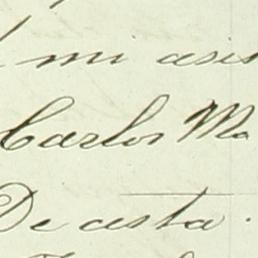 mi asis
Carlos Ma
De asta.